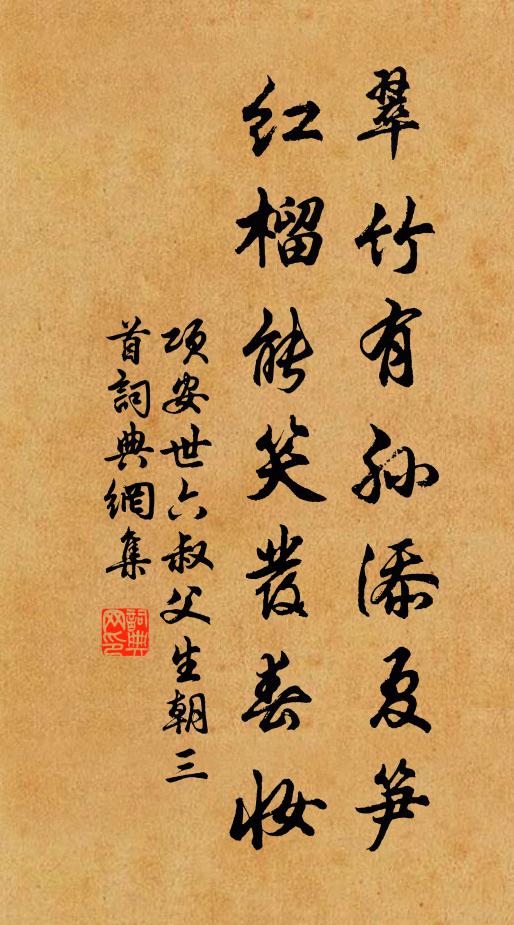 翠竹有孙添夏笋
红榴能笑發春妝
项安世六叔父生朝三
首詞典網集
詞典
网印